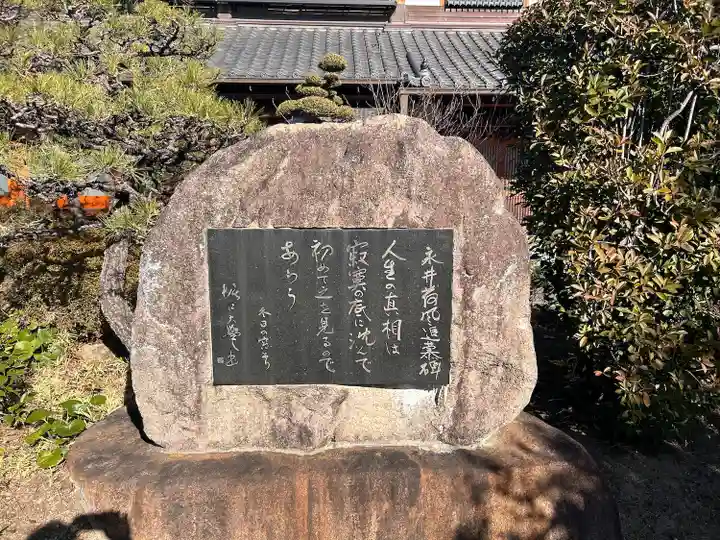 永井荷風追慕碑
人生の真相は
寂寞の底に沈んで
初めて之を見るので
あらう
冬日の窓 より
堀口大學 書